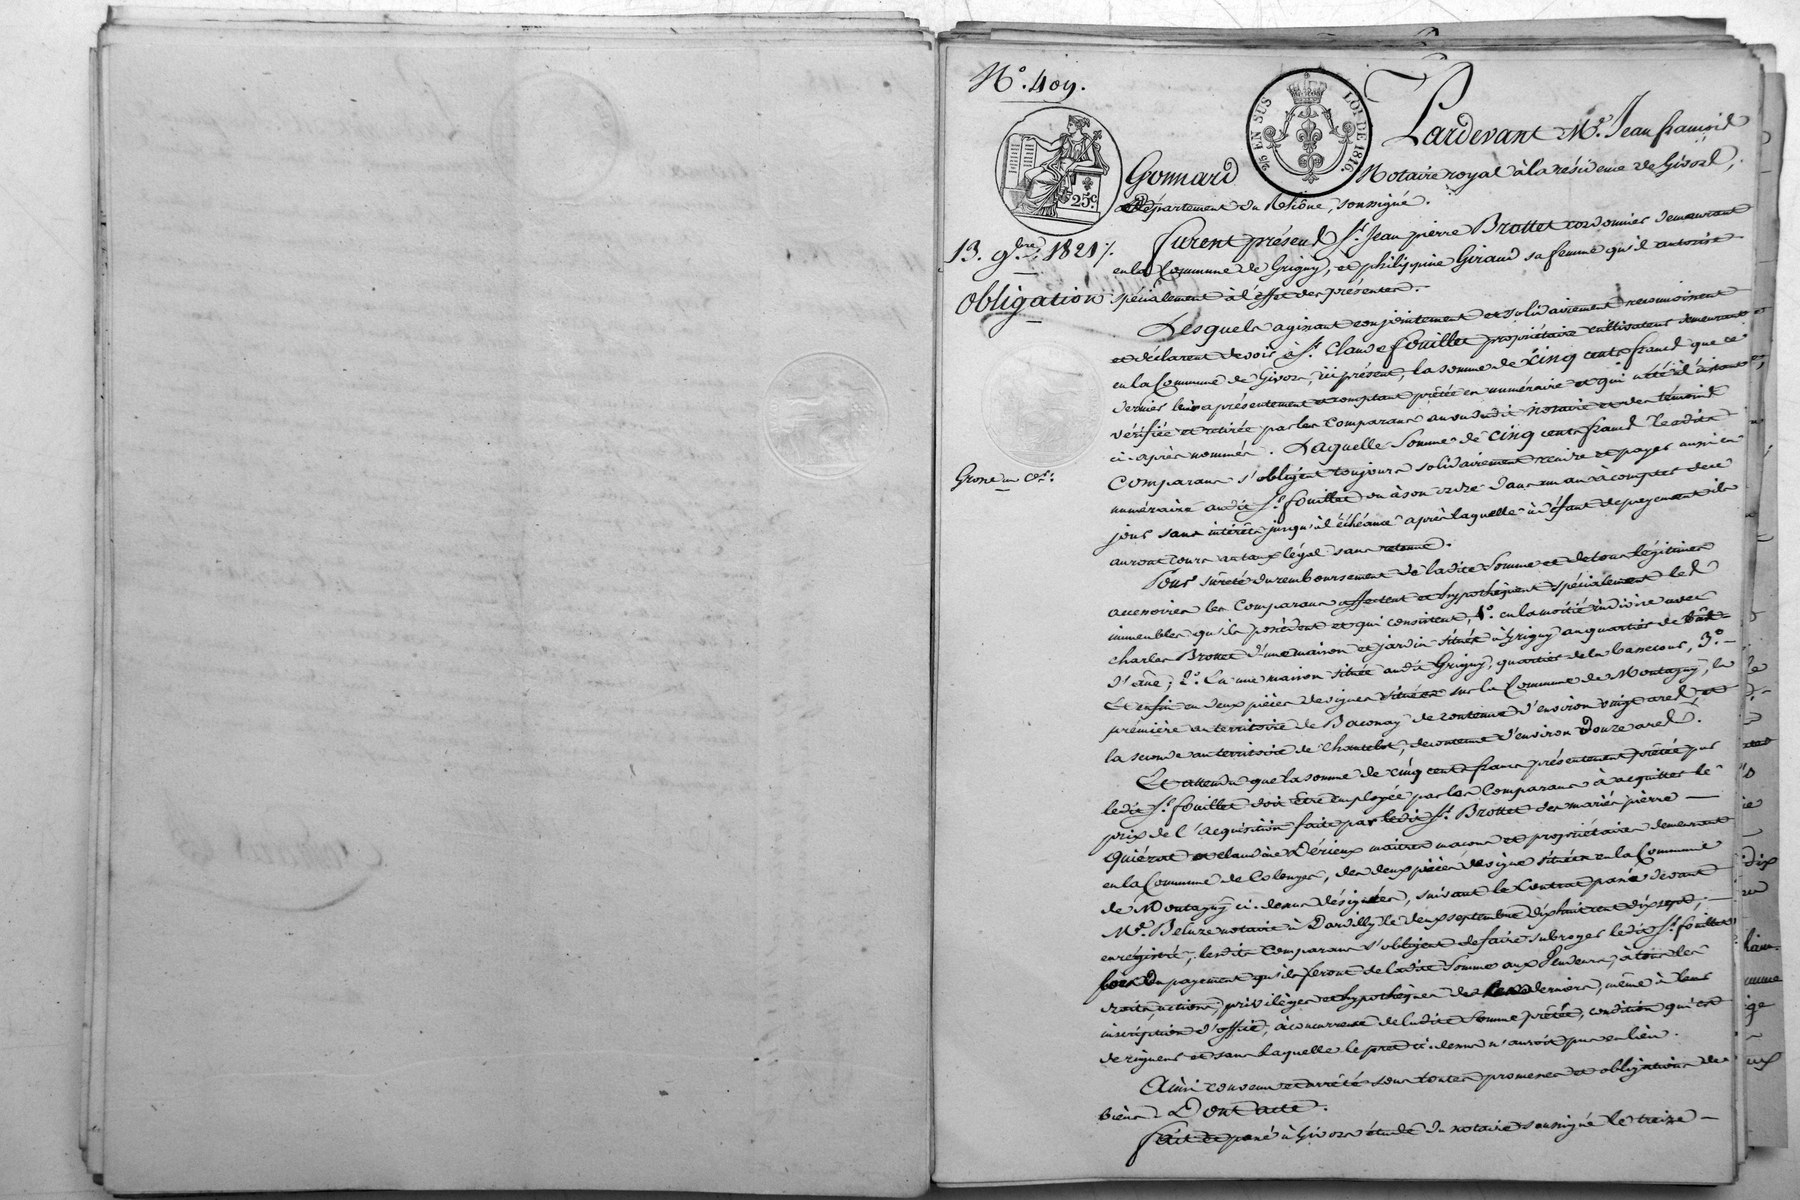 N.º 409.
2/10 EN SUS LOI DE 1816.
25.c
Pardevant M.e Jean françois
Gonnard Notaire royal à la résidence de Givors,
Département du Rhône, soussigné.
13. 9.bre 1821.
Obligation
Grosse en c.on
furent présens S.r Jean pierre Brottet cordonnier demeurant
en la Commune de Grigny, et philippine Giraud sa femme qu'il autorise
spécialement à l'effet des présentes.
Lesquels agissant conjointement et solidairement reconnoissent
et déclarent devoir à S.r Claude fouillet propriétaire cultivateur demeurant
en la Commune de Givors, ici présent, la somme de Cinq cents francs que ce
dernier leur a présentement et comptant prêtée en numéraire et qui a été à l'instant
vérifiée et retirée par les Comparans au vu dudit notaire et des témoins
ci-après nommés. Laquelle somme de cinq cents francs lesdits
Comparans s'obligent toujours solidairement rendre et payer aussi en
numéraire audit S.r fouillet ou à son ordre dans un an à compter de ce
jour sans intérêts jusqu'à l'échéance après laquelle à défaut de payement ils
auront cours au taux légal sans retenue.
Pour sûreté du remboursement de ladite somme et de tous légitimes
accessoires les Comparans affectent et hypothèquent spécialement les
immeubles qu'ils possèdent et qui consistent, 1.º en la moitié indivise avec
charles Brottet d'une maison et jardin situés à Grigny au quartier de
d'âne; 2.º En une maison située audit Grigny, quartier de la bassecour, 3.º
Et enfin en deux pièces de vignes situées sur la Commune de Montagny, la
première au territoire de Baconay de contenue d'environ vingt ares et
la seconde au territoire de Chantelot, de contenue d'environ Douze ares.
Et attendu que la somme de cinq cents francs présentement prêtée par
ledit S.r fouillet doit être employée par les Comparans à acquitter le
prix de l'acquisition faite par ledit S.r Brottet des mariés pierre
Quiérat et claudine Dérieux maitre maçon et propriétaire demeurant
en la Commune de , des deux pièces de vigne situées en la Commune
de Montagny ci-dessus désignées, suivant le Contrat passé devant
M.e Beluze notaire à Dardilly le deux septembre dix huit cent dix sept,
enrégistré, lesdits Comparans s'obligent de faire subroger ledit S.r fouillet
lors du payement qu'ils feront de ladite somme aux Vendeurs, à tous les
droits, actions, privilèges et hypothèques de ces derniers, même à leur
inscription d'office, à concurrence de ladite somme prêtée, condition qui est
de rigueur et sans laquelle le prêt ci-dessus n'auroit pas eu lieu.
Ainsi convenu et arrêté sous toutes promesses et obligations de
biens. Dont acte.
fait et passé à Givors étude du notaire soussigné le treize